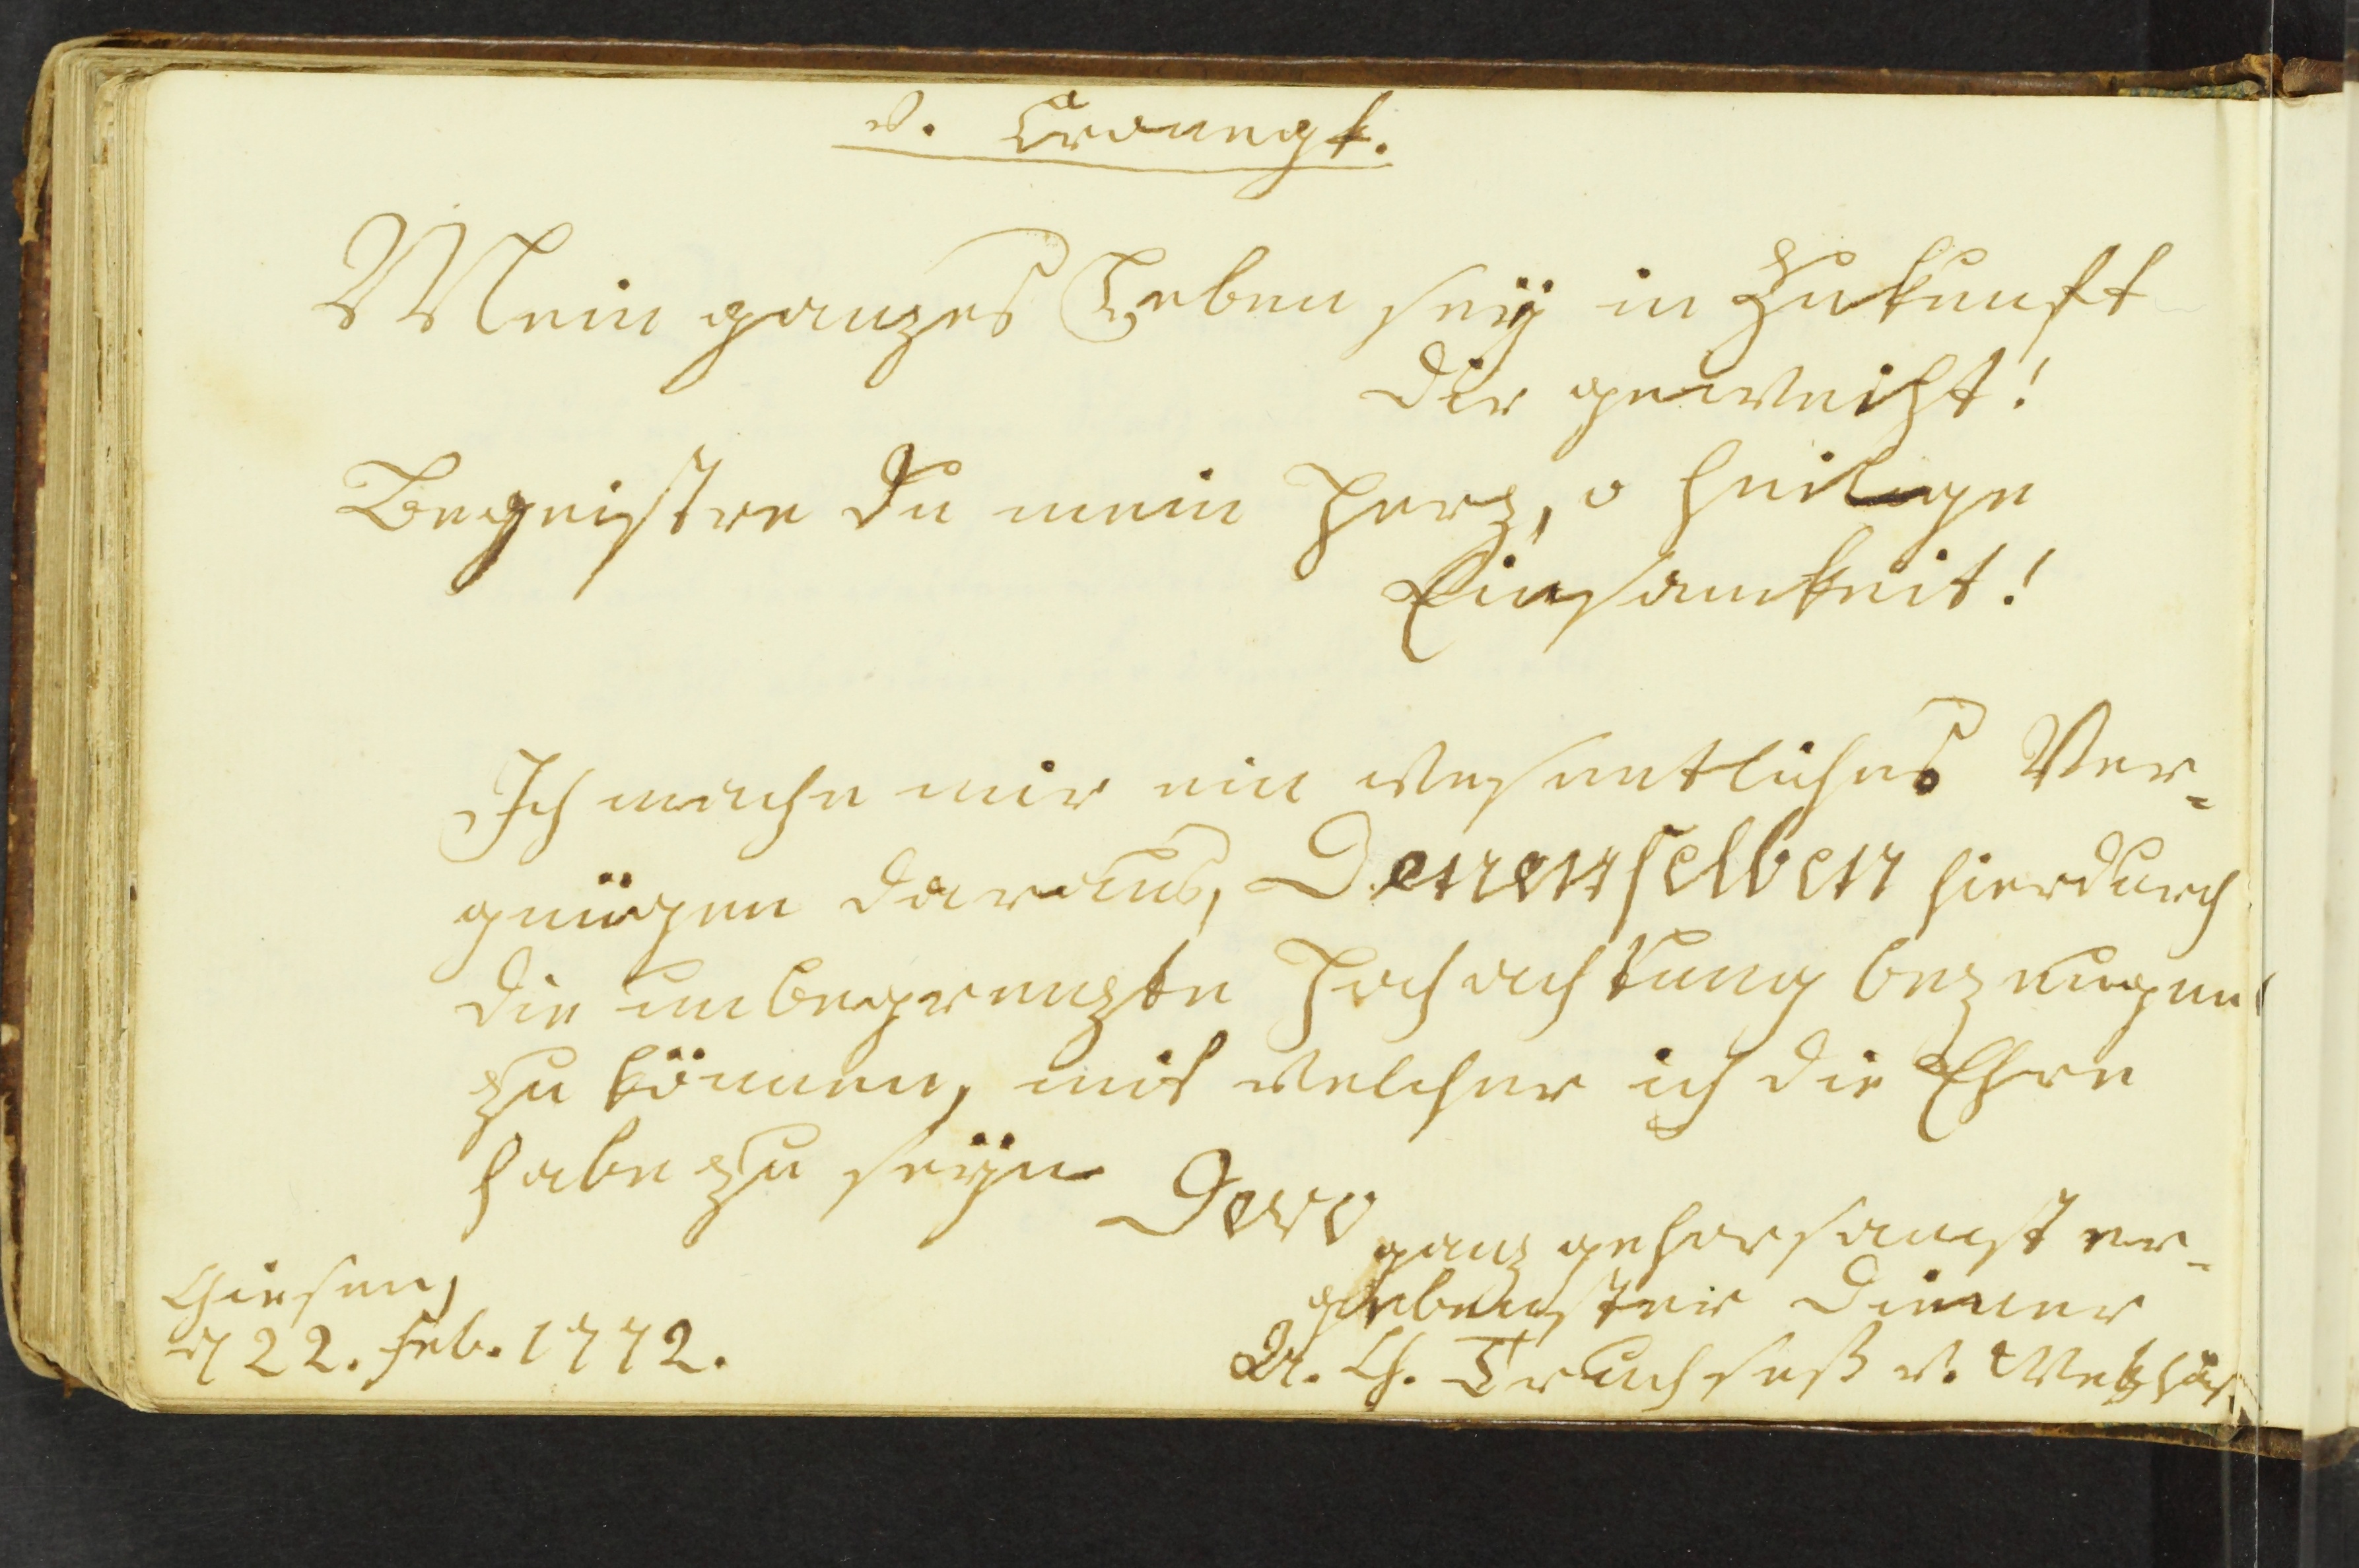 v. Cronegk.
Mein ganzes Leben seÿ in Zukunft
dir geweiht!
Begeistre du mein Herz, o heilige
Einsamkeit!
Ich mache mir ein wesentliches Ver-
gnügen daraus, Denenselben hierdurch
die unbegrenzte Hochachtung bezeugen
zu können, mit welcher ich die Ehre
habe zu seÿn
Dero
ganz gehorsamst er-
gebenster Diener
Giesen,
22. Feb. 1772.
Ch. Truchseß v. Wetzhäs.